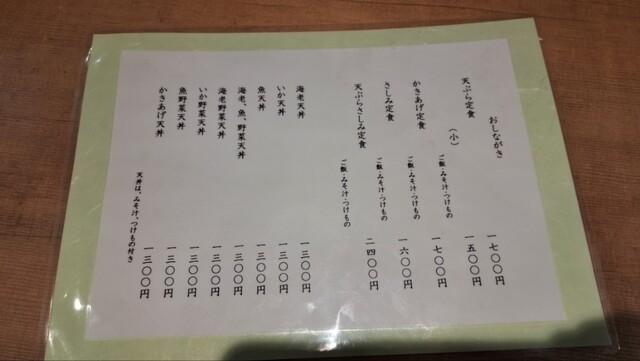 おしながき
天ぷら定食 一七〇〇円
(小) 一五〇〇円
ご飯・みそ汁・つけもの
かきあげ定食 一七〇〇円
ご飯・みそ汁・つけもの
さしみ定食 一六〇〇円
ご飯・みそ汁・つけもの
天ぷらさしみ定食 二四〇〇円
ご飯・みそ汁・つけもの
海老天丼 一三〇〇円
いか天丼 一三〇〇円
魚天丼 一三〇〇円
海老、魚、野菜天丼 一三〇〇円
海老野菜天丼 一三〇〇円
いか野菜天丼 一三〇〇円
魚野菜天丼 一三〇〇円
かきあげ天丼 一三〇〇円
天丼は、みそ汁、つけもの付き